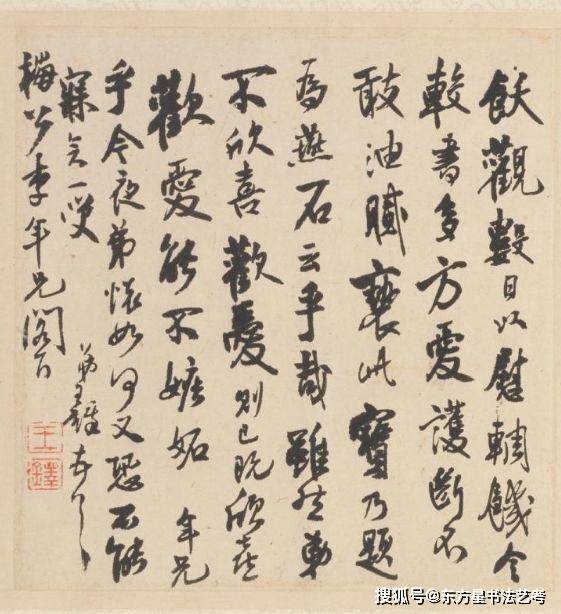 飫觀數日以慰輖饑今
較書多方愛護斷不
敢油膩褻此寶乃題
為燕石云乎哉雖然
不欣喜歡愛則已既欣喜
歡愛能不嫉妬 年兄
乎今夜弟懷如何又恐不能
寐矣一
梅公李年兄閣下
弟王鐸
王鐸
搜狐号@东方星书法艺考